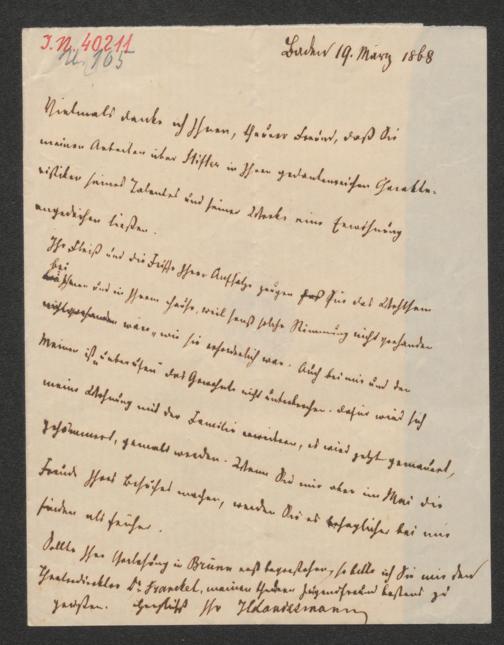 I. N. 40211
N. 105
Baden 19. März 1868
Vielmals danke ich Ihnen, theurer Freund, daß Sie
meinen Arbeiten über Stifter in Ihrer gedankenreichen Charakte-
ristik seines Talentes und seiner Werke eine Erwähnung
angedeihen ließen.
Ihr Fleiß und die Frische Ihrer Aufsätze zeugen für das Wohlsein
bei
Ihnen und in Ihrem Hause, weil sonst solche Stimmung nicht vorhanden
wäre, wie sie erforderlich war. Auch bei mir und den
Meinen ist „unberufen" das nicht unterbrochen. Dafür wird sich
meine Wohnung mit der Familie erweitern, es wird jetzt gemauert,
gehämmert, gemalt werden. Wenn Sie mir aber im Mai die
Freude Ihres Besuches machen, werden Sie es behaglicher bei mir
finden als früher.
Sollte Ihre Vorlesung in Brünn erst bevorstehen, so bitte ich Sie mir den
Dr. Franckel, meinen theuern Jugendfreund bestens zu
grüßen. Herzlichst Ihr HLandesmann